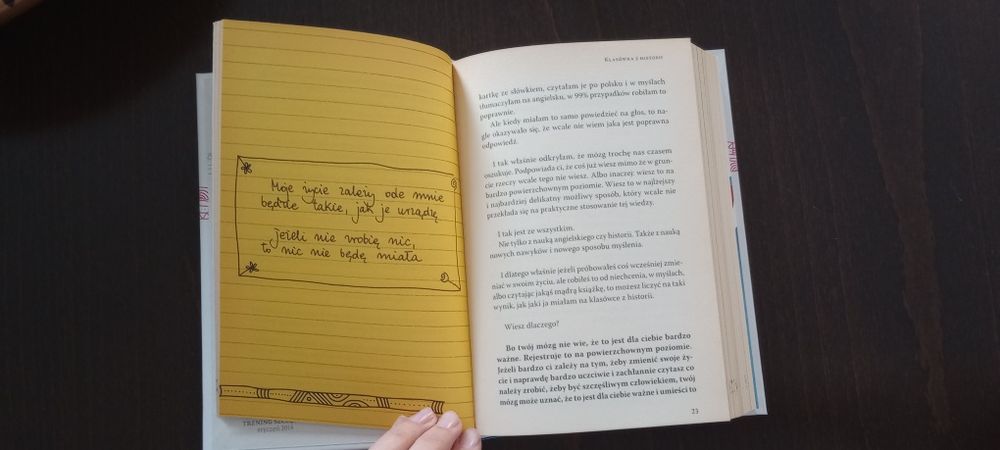 Moje życie zależy ode mnie
będzie takie, jak je urządzę
jeżeli nie zrobię nic,
to nic nie będę miała
TRENING
styczeń 2014
KLASÓWKA Z HISTORII
kartkę ze słówkiem, czytałam je po polsku i w myślach
tłumaczyłam na angielsku, w 99% przypadków robiłam to
poprawnie.
Ale kiedy miałam to samo powiedzieć na głos, to na-
gle okazywało się, że wcale nie wiem jaka jest poprawna
odpowiedź.
I tak właśnie odkryłam, że mózg trochę nas czasem
oszukuje. Podpowiada ci, że coś już wiesz mimo że w grun-
cie rzeczy wcale tego nie wiesz. Albo inaczej: wiesz to na
bardzo powierzchownym poziomie. Wiesz to w najlżejszy
i najbardziej delikatny możliwy sposób, który wcale nie
przekłada się na praktyczne stosowanie tej wiedzy.
I tak jest ze wszystkim.
Nie tylko z nauką angielskiego czy historii. Także z nauką
nowych nawyków i nowego sposobu myślenia.
I dlatego właśnie jeżeli próbowałeś coś wcześniej zmie-
niać w swoim życiu, ale robiłeś to od niechcenia, w myślach,
albo czytając jakąś mądrą książkę, to możesz liczyć na taki
wynik, jak jaki ja miałam na klasówce z historii.
Wiesz dlaczego?
Bo twój mózg nie wie, że to jest dla ciebie bardzo
ważne. Rejestruje to na powierzchownym poziomie.
Jeżeli bardzo ci zależy na tym, żeby zmienić swoje ży-
cie i naprawdę bardzo uczciwie i zachłannie czytasz co
należy zrobić, żeby być szczęśliwym człowiekiem, twój
mózg może uznać, że to jest dla ciebie ważne i umieści to
23